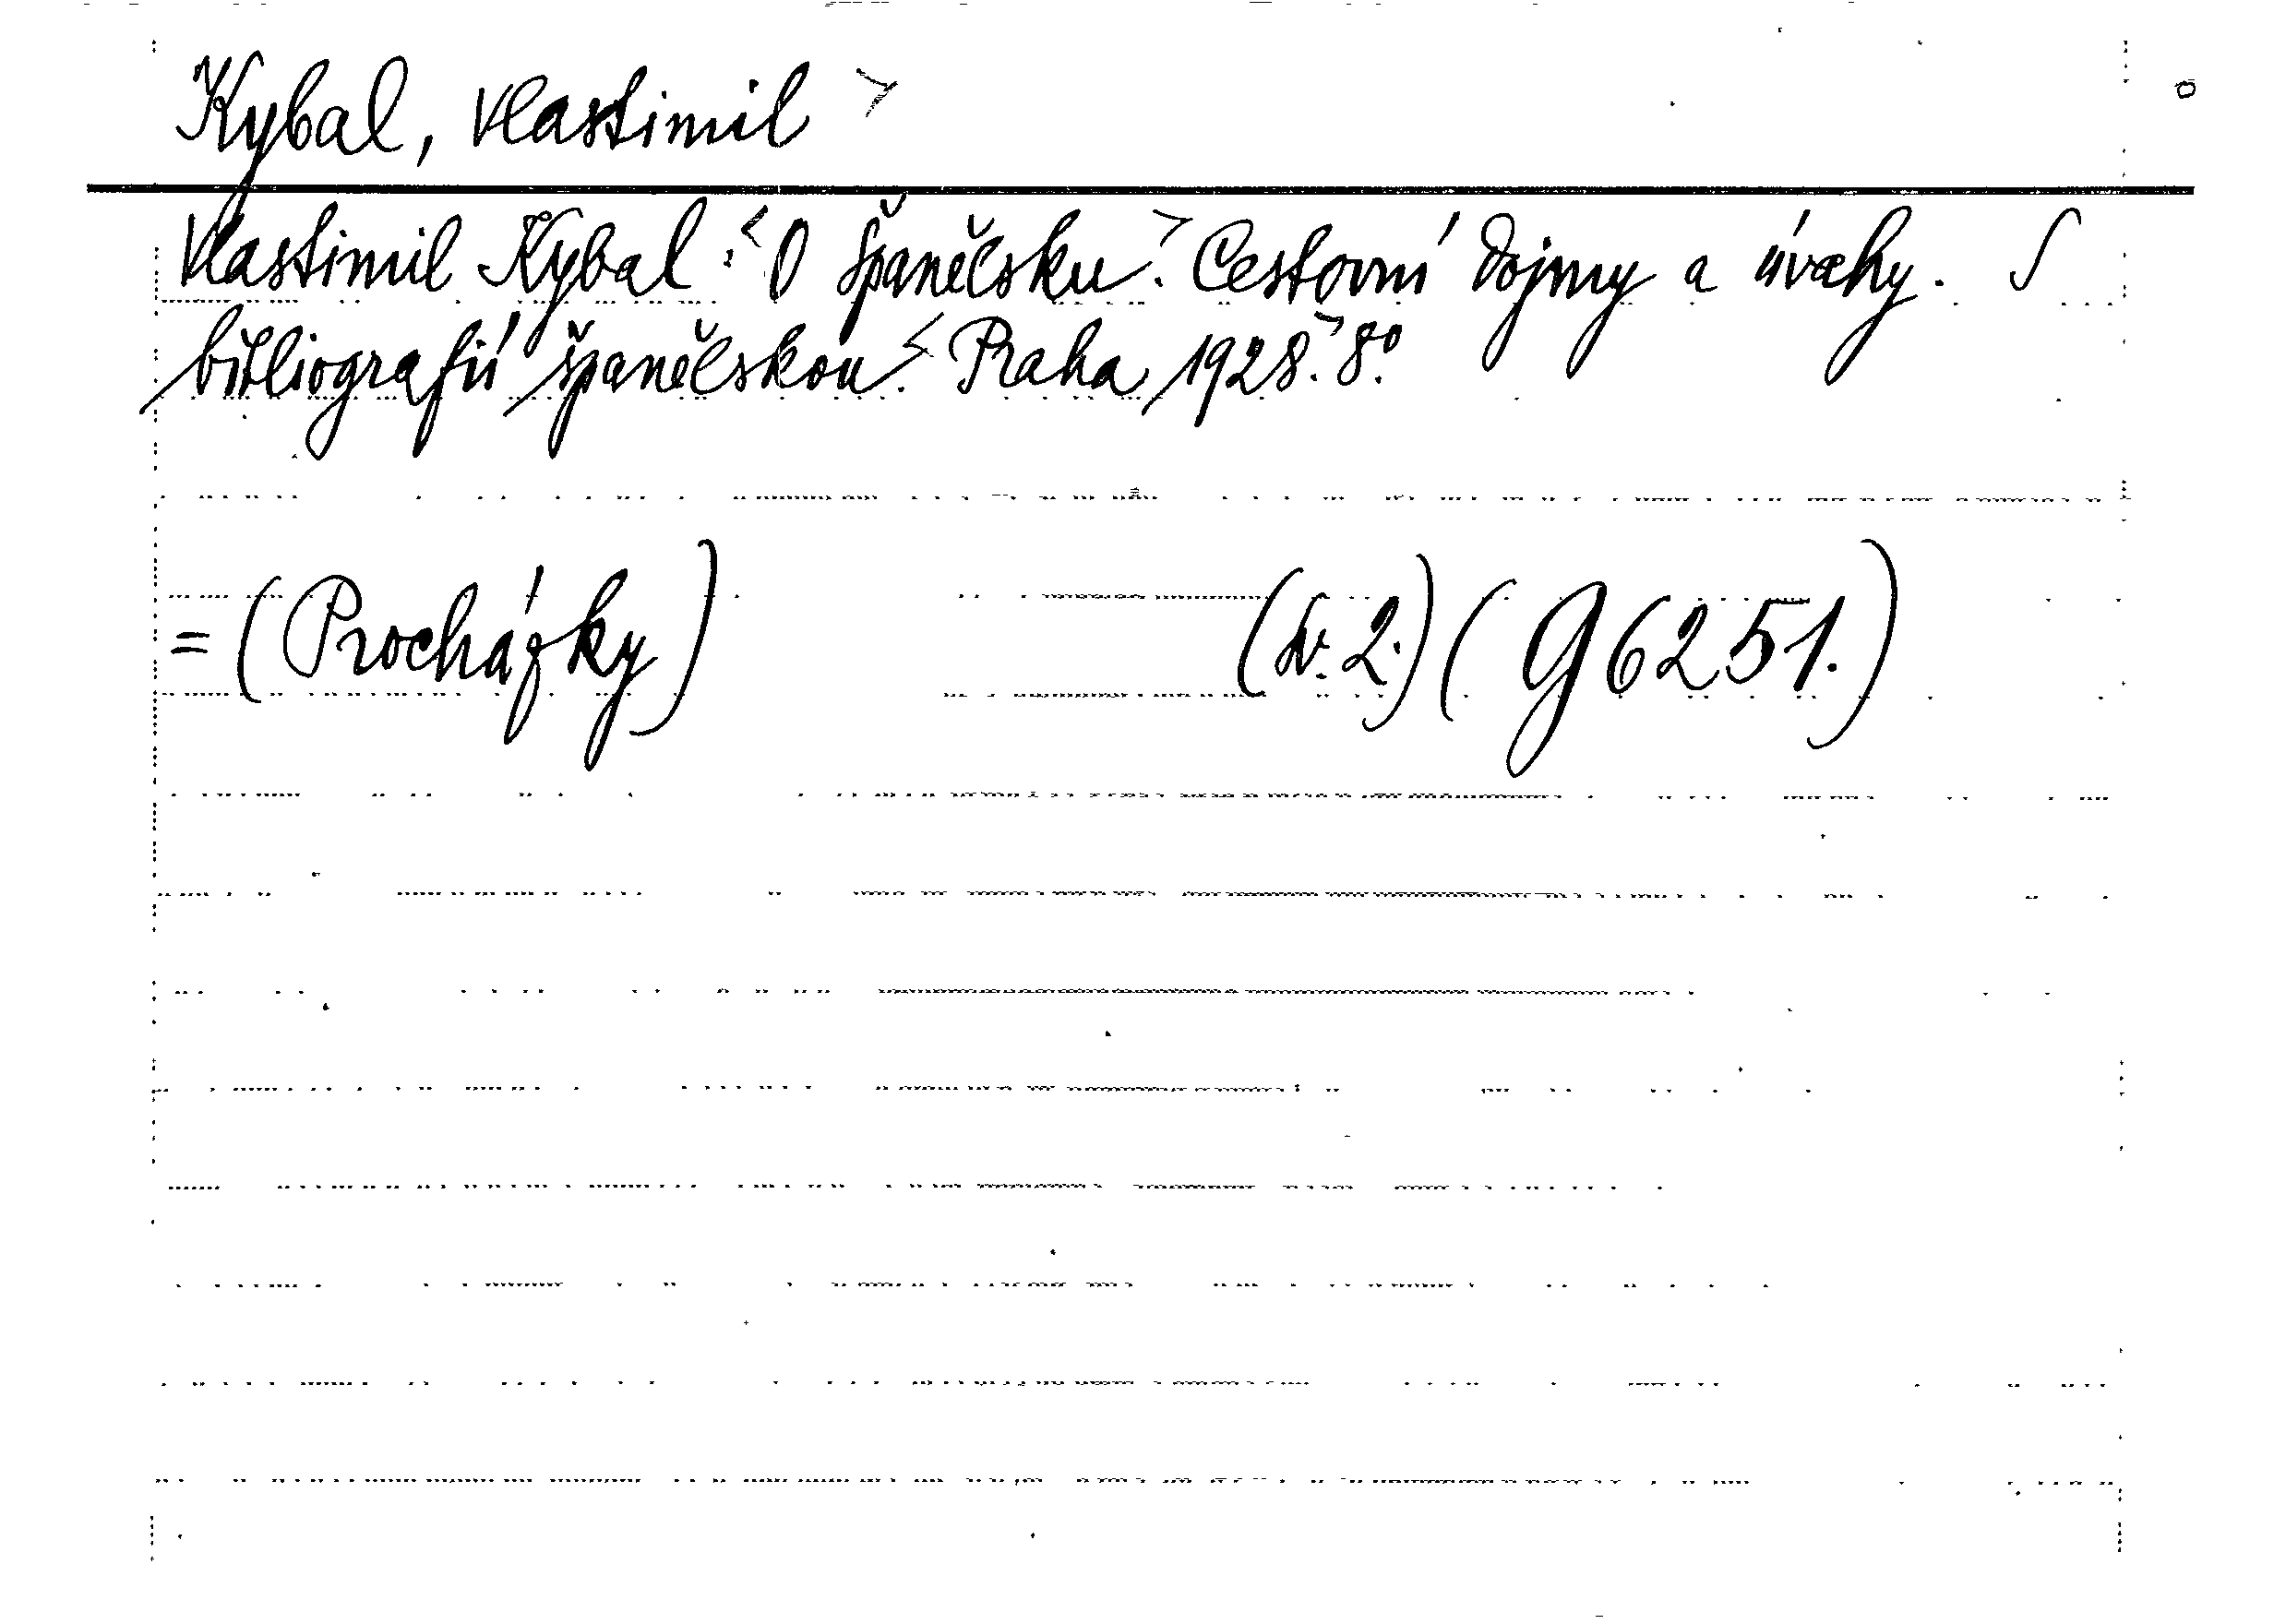 Kybal, Vlastimil >
Vlastimil Kybal : < O Španělsku. > Cestovní dojmy a úvahy. S
bibliografií španělskou. < Praha, 1928. > 8.°
= (Procházky) (sv. 2.) (G 6251.)